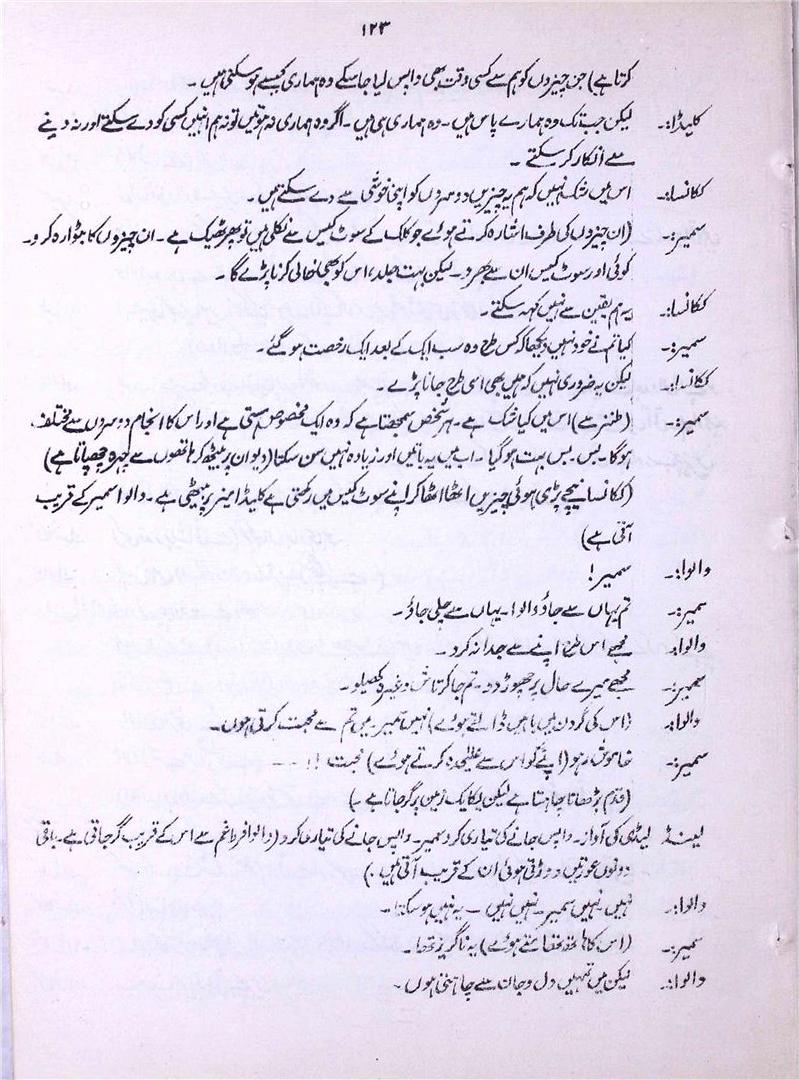 ۱۲۳
کرتا ہے) جن چیزوں کو ہم سے کسی وقت بھی واپس لیا جا سکے وہ ہماری کیسے ہو سکتی ہیں ۔
کلیڈا:۔ لیکن جب تک وہ ہمارے پاس ہیں ۔ وہ ہماری ہی ہیں ۔ اگر وہ ہماری نہ ہوتیں تو نہ ہم انہیں کسی کو دے سکتے اور نہ دینے
سے انکار کر سکتے ۔
ککانسا:۔ اس میں شک نہیں کہ ہم یہ چیزیں دوسروں کو اپنی خوشی سے دے سکتے ہیں ۔
سمیر:۔ (ان چیزوں کی طرف اشارہ کرتے ہوئے جو کاک کے سوٹ کیس سے نکلی ہیں تو پھر ٹھیک ہے ۔ ان چیزوں کا بٹوارہ کرو ۔
کوئی اور سوٹ کیس ان سے بھر دو ۔ لیکن بہت جلد، اس کو بھی خالی کرنا پڑے گا ۔
ککانسا:۔ یہ ہم یقین سے نہیں کہہ سکتے ۔
سمیر:۔ کیا تم نے خود نہیں دیکھا کہ کس طرح وہ سب ایک کے بعد ایک رخصت ہو گئے ۔
ککانسا:۔ لیکن یہ ضروری نہیں کہ ہمیں بھی اسی طرح جانا پڑے ۔
سمیر:۔ (طنز سے) اس میں کیا شک ہے ۔ ہر شخص سمجھتا ہے کہ وہ ایک مخصوص ہستی ہے اور اس کا انجام دوسروں سے مختلف
ہوگا ۔ بس ۔ بس بہت ہو گیا ۔ اب میں یہ باتیں اور زیادہ نہیں سن سکتا (دیوان پر بیٹھ کر ہاتھوں سے چہرہ چھپاتا ہے)
(ککانسا نیچے پڑی ہوئی چیزیں اٹھا اٹھا کر اپنے سوٹ کیس میں رکھتی ہے کلیڈا میز پر بیٹھی ہے ۔ والوا سمیر کے قریب
آتی ہے)
والوا:۔ سمیر!
سمیر:۔ تم یہاں سے جاؤ والوا ۔ یہاں سے چلی جاؤ ۔
والوا:۔ مجھے اس طرح اپنے سے جدا نہ کرو ۔
سمیر:۔ مجھے میرے حال پر چھوڑ دو ۔ تم جا کر تاش وغیرہ کھیلو ۔
والوا:۔ (اس کی گردن میں باہیں ڈالتے ہوئے) نہیں سمیر میں تم سے محبت کرتی ہوں ۔
سمیر:۔ خاموش رہو (اپنے کو اس سے علیحدہ کرتے ہوئے) محبت !! ---
(قدم بڑھانا چاہتا ہے لیکن یکایک زمین پر گر جاتا ہے ۔)
لینڈ لیڈی کی آواز ۔ واپس جانے کی تیاری کرو سمیر ۔ واپس جانے کی تیاری کرو (والوا فرط غم سے اس کے قریب گر جاتی ہے ۔ باقی
دونوں عورتیں دوڑتی ہوئی ان کے قریب آتی ہیں ۔)
والوا:۔ نہیں ۔ نہیں سمیر ۔ نہیں نہیں ۔ یہ نہیں ہو سکتا ۔
سمیر:۔ (اس کا ہاتھ تھامتے ہوئے) یہ ناگزیر تھا ۔
والوا:۔ لیکن میں تمہیں دل و جان سے چاہتی ہوں ۔